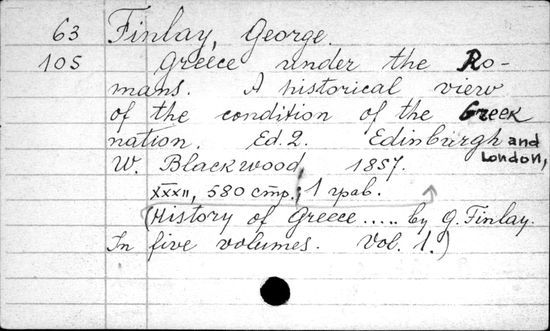 63 Finlay, George.
105 Greece under the Ro-
mans. A historical view
of the condition of the Greek
nation. Ed. 2. Edinburgh and
London,
W. Blackwood, 1857.
XXXII, 580 стр.; 1 грав.
(History of Greece ..... by G. Finlay.
In five volumes. Vol. 1.)